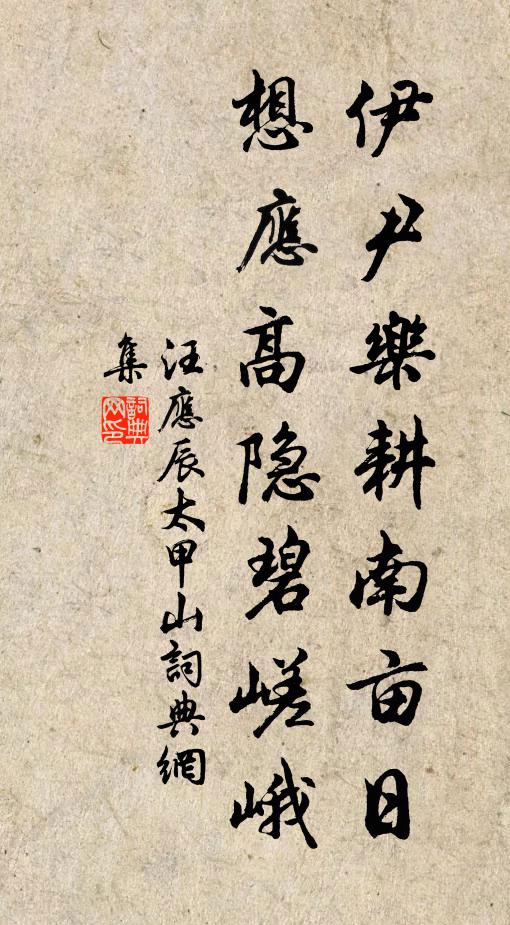 伊尹樂耕南亩日
想應高隐碧嵯峨
汪應辰太甲山詞典網
集
詞典网印